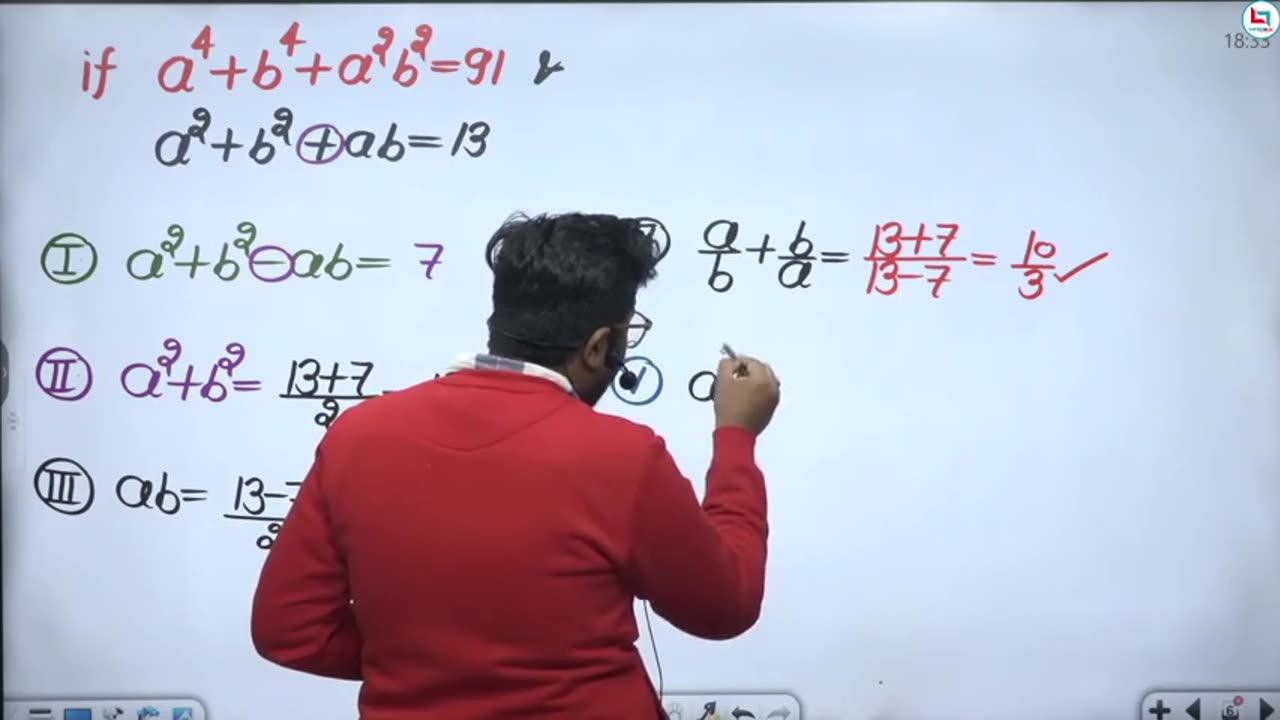 if a⁴+b⁴+a²b²=91 &
a²+b²+ab=13
I a²+b²-ab= 7
II a²+b²= 13+7/2
III ab= 13-7/2
a/b+b/a= 13+7/13-7= 10/3 ✓
V a
18:33